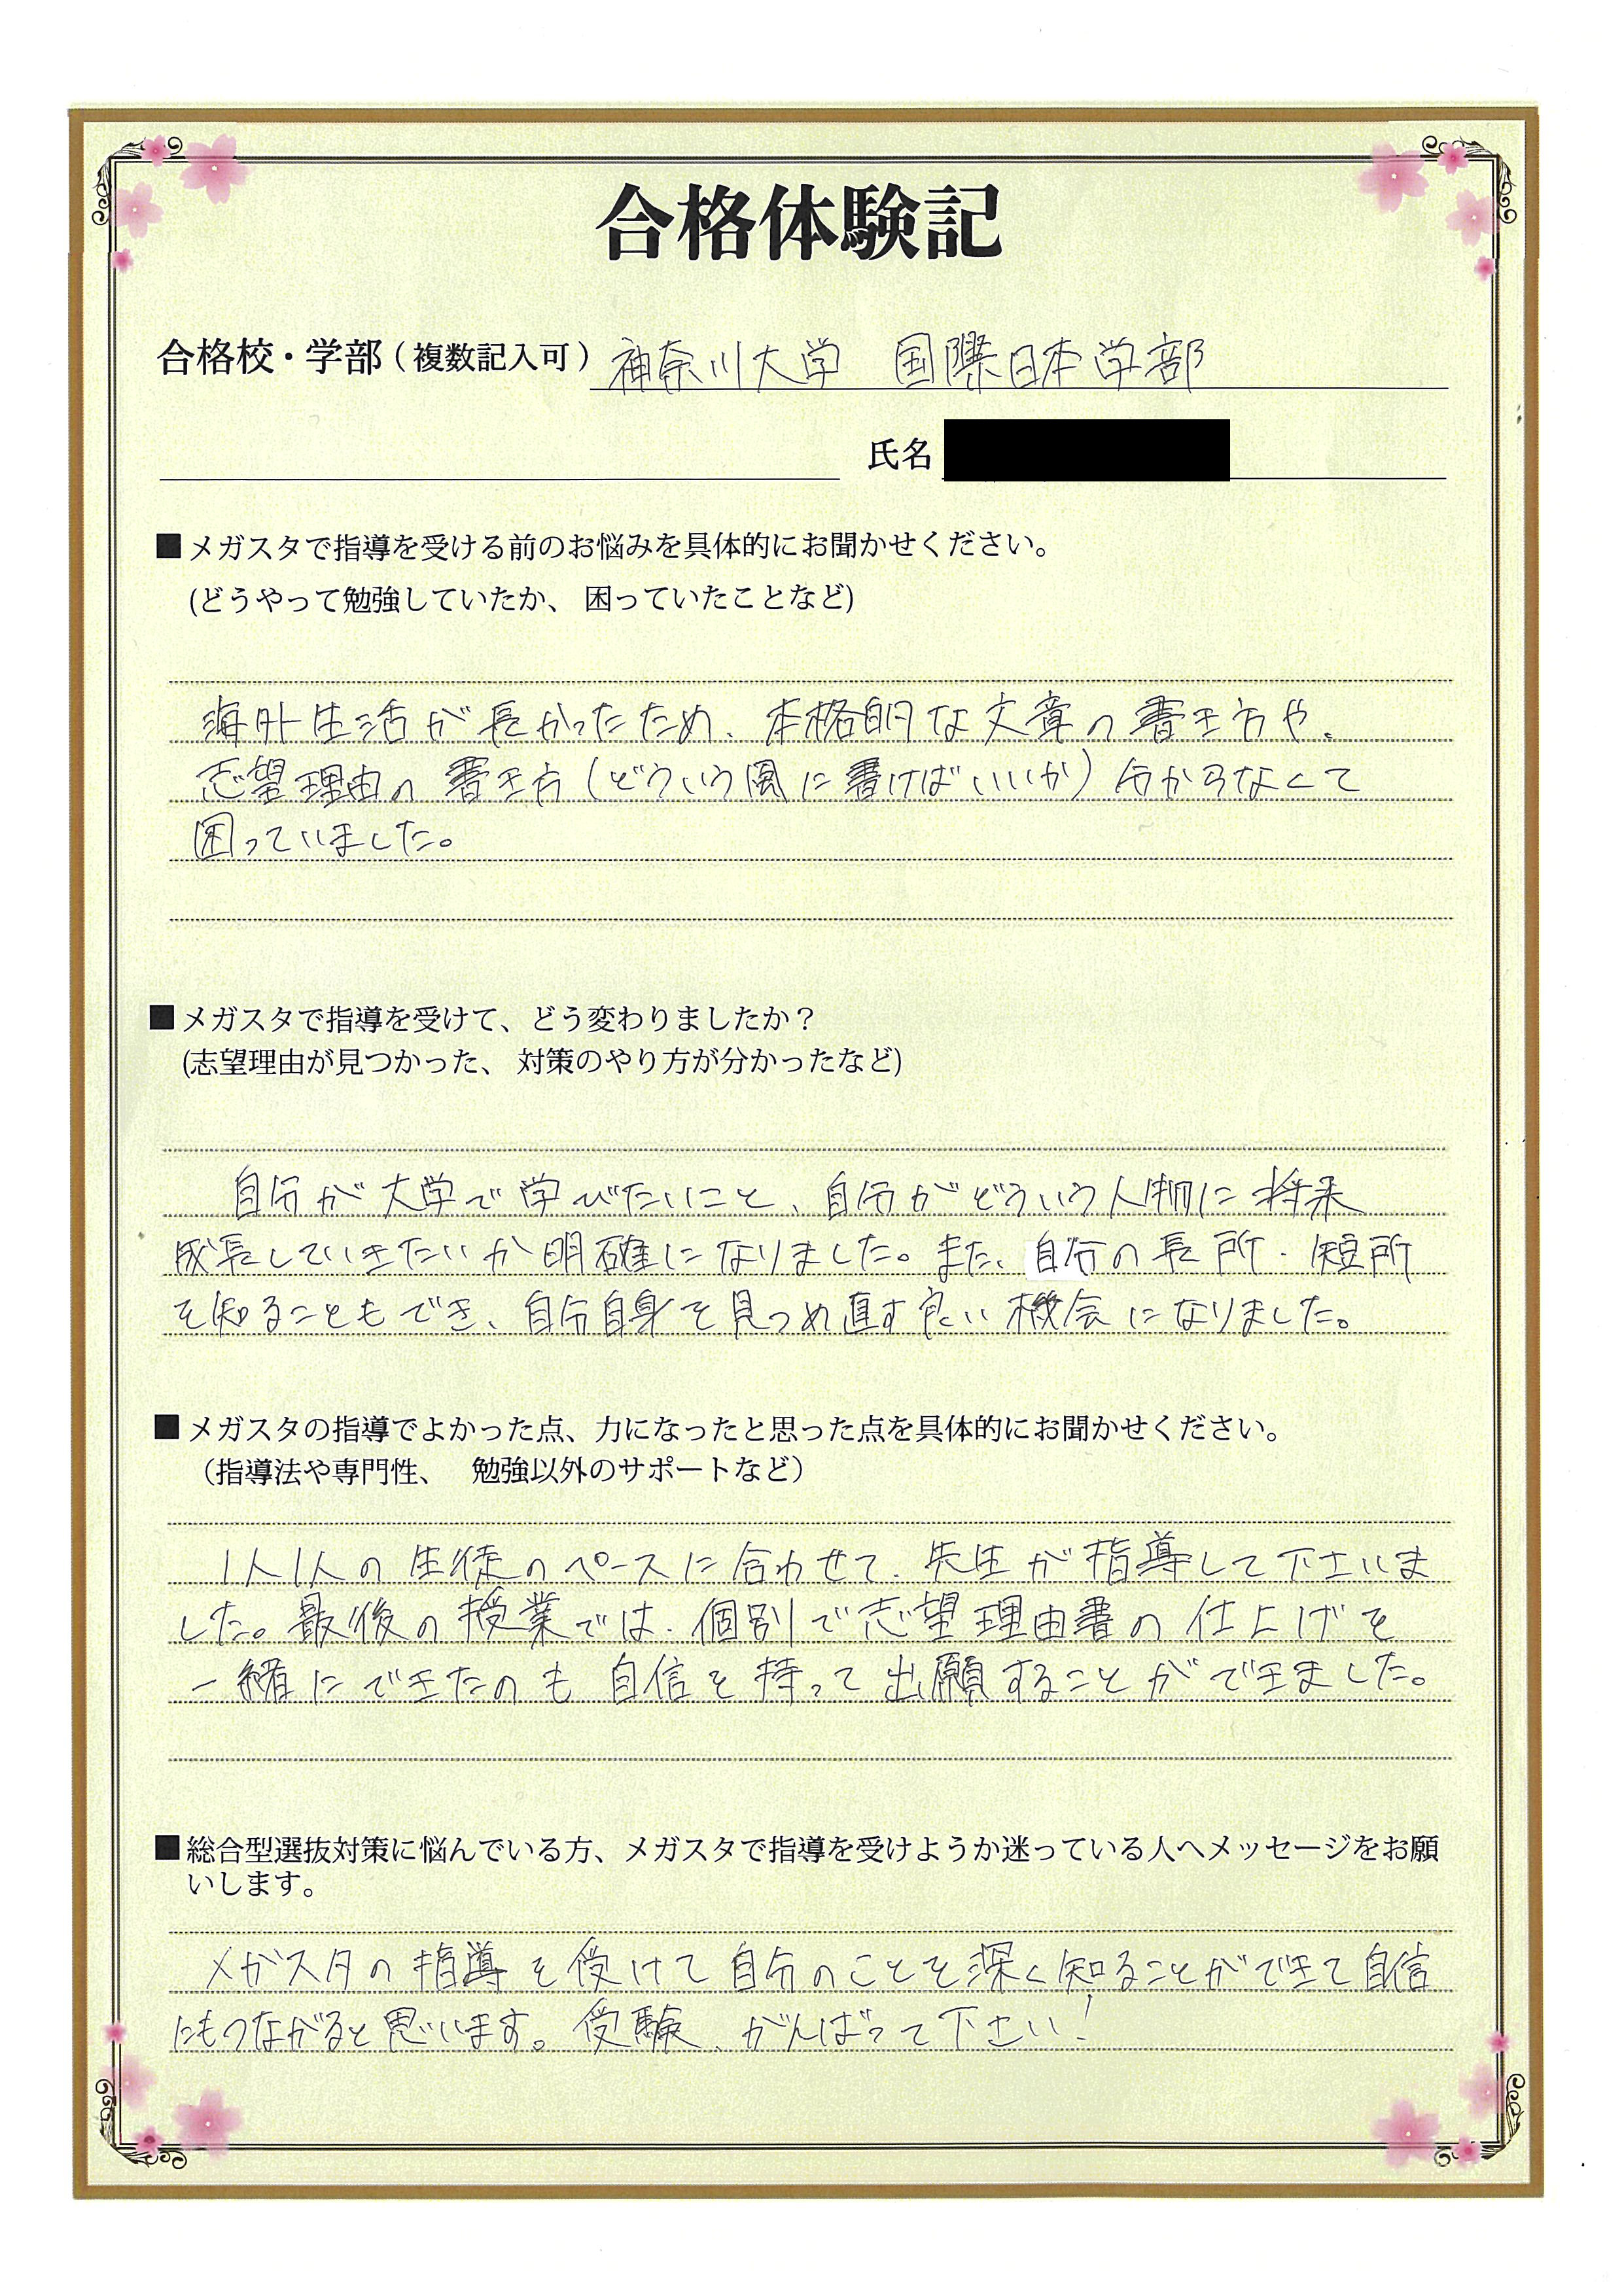 合格体験記
合格校・学部(複数記入可) 神奈川大学 国際日本学部
氏名
■メガスタで指導を受ける前のお悩みを具体的にお聞かせください。
(どうやって勉強していたか、困っていたことなど)
海外生活が長かったため、本格的な文章の書き方や、
志望理由の書き方(どういう風に書けばいいか)分からなくて
困っていました。
■メガスタで指導を受けて、どう変わりましたか？
(志望理由が見つかった、対策のやり方が分かったなど)
自分が大学で学びたいこと、自分がどういう人物に将来
成長していきたいか明確になりました。また、自分の長所・短所
を知ることもでき、自分自身を見つめ直す良い機会になりました。
■メガスタの指導でよかった点、力になったと思った点を具体的にお聞かせください。
（指導法や専門性、 勉強以外のサポートなど）
1人1人の生徒のペースに合わせて、先生が指導して下さいま
した。最後の授業では、個別で志望理由書の仕上げを
一緒にできたのも自信を持って出願することができました。
■総合型選抜対策に悩んでいる方、メガスタで指導を受けようか迷っている人へメッセージをお願
いします。
メガスタの指導を受けて自分のことを深く知ることができて自信
にもつながると思います。受験、がんばって下さい！